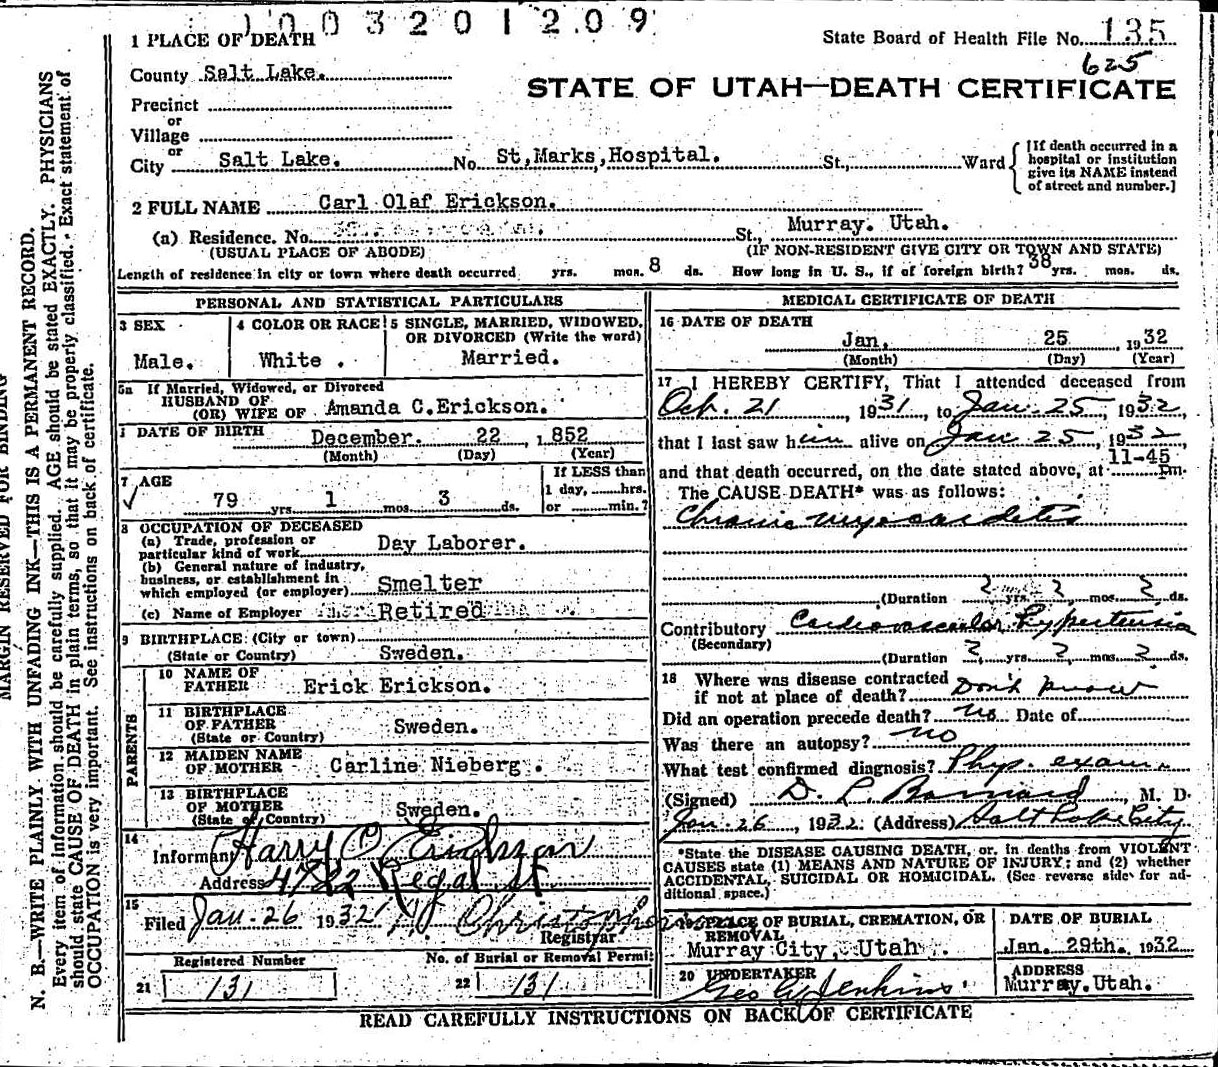 1003201209
1 PLACE OF DEATH
State Board of Health File No. 135
625
County Salt Lake.
STATE OF UTAH—DEATH CERTIFICATE
Precinct
or
Village
or
City Salt Lake. No. St,Marks,Hospital. St., Ward
[If death occurred in a hospital or institution give its NAME instead of street and number.]
2 FULL NAME Carl Olaf Erickson.
(a) Residence. No. St., Murray. Utah.
(USUAL PLACE OF ABODE) (IF NON-RESIDENT GIVE CITY OR TOWN AND STATE)
Length of residence in city or town where death occurred yrs. mos. 8 ds. How long in U. S., if of foreign birth? 38 yrs. mos. ds.
PERSONAL AND STATISTICAL PARTICULARS
3 SEX
Male.
4 COLOR OR RACE
White .
5 SINGLE, MARRIED, WIDOWED,
OR DIVORCED (Write the word)
Married.
5a If Married, Widowed, or Divorced
HUSBAND OF
(OR) WIFE OF Amanda C.Erickson.
DATE OF BIRTH December. 22 , 1852
(Month) (Day) (Year)
7 AGE
79 yrs. 1 mos. 3 ds.
If LESS than
1 day, hrs.
or min.?
8 OCCUPATION OF DECEASED
(a) Trade, profession or
particular kind of work Day Laborer.
(b) General nature of industry,
business, or establishment in
which employed (or employer) Smelter
(c) Name of Employer Retired
9 BIRTHPLACE (City or town)
(State or Country) Sweden.
PARENTS
10 NAME OF
FATHER Erick Erickson.
11 BIRTHPLACE
OF FATHER
(State or Country) Sweden.
12 MAIDEN NAME
OF MOTHER Carline Nieberg .
13 BIRTHPLACE
OF MOTHER
(State or Country) Sweden.
14
Informant Harry C Erickson
Address 4722 Regal St
15
Filed Jan. 26 1932 Christopherson
Registrar
Registered Number
No. of Burial or Removal Permit
21 131
22 131
MEDICAL CERTIFICATE OF DEATH
16 DATE OF DEATH
Jan. 25 , 1932
(Month) (Day) (Year)
17 I HEREBY CERTIFY, That I attended deceased from
Oct. 21 , 1931, to Jan. 25, 1932,
that I last saw him alive on Jan 25, 1932
and that death occurred, on the date stated above, at 11-45 Pm.
The CAUSE DEATH* was as follows:
Chronic myocarditis
(Duration 2 yrs. 2 mos. 2 ds.
Contributory Cardiovascular Hypertension
(Secondary)
(Duration 2 yrs. 2 mos. 2 ds.
18 Where was disease contracted
if not at place of death? Don't know
Did an operation precede death? no Date of
Was there an autopsy? no
What test confirmed diagnosis? Phys. exam
(Signed) D. L. Barnard, M. D.
Jan. 26, 1932 (Address) Salt Lake City
*State the DISEASE CAUSING DEATH, or, in deaths from VIOLENT
CAUSES state (1) MEANS AND NATURE OF INJURY; and (2) whether
ACCIDENTAL, SUICIDAL OR HOMICIDAL. (See reverse side for ad-
ditional space.)
19 PLACE OF BURIAL, CREMATION, OR
REMOVAL
Murray City, Utah .
DATE OF BURIAL
Jan. 29th. 1932
20 UNDERTAKER
Geo W Jenkins
ADDRESS
Murray. Utah.
READ CAREFULLY INSTRUCTIONS ON BACK OF CERTIFICATE
MARGIN RESERVED FOR BINDING
N. B.—WRITE PLAINLY WITH UNFADING INK—THIS IS A PERMANENT RECORD.
Every item of information should be carefully supplied. AGE should be stated EXACTLY. PHYSICIANS
should state CAUSE OF DEATH in plain terms, so that it may be properly classified. Exact statement of
OCCUPATION is very important. See instructions on back of certificate.